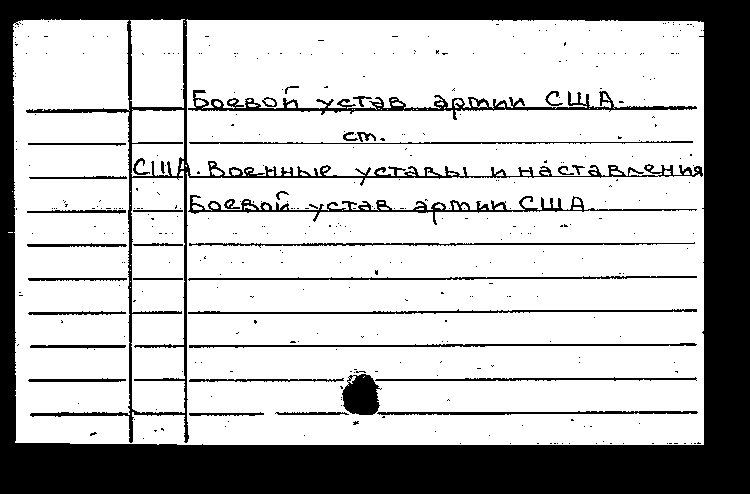 Боевой устав армии США.
ст.
США. Военные уставы и наставления
Боевой устав армии США.